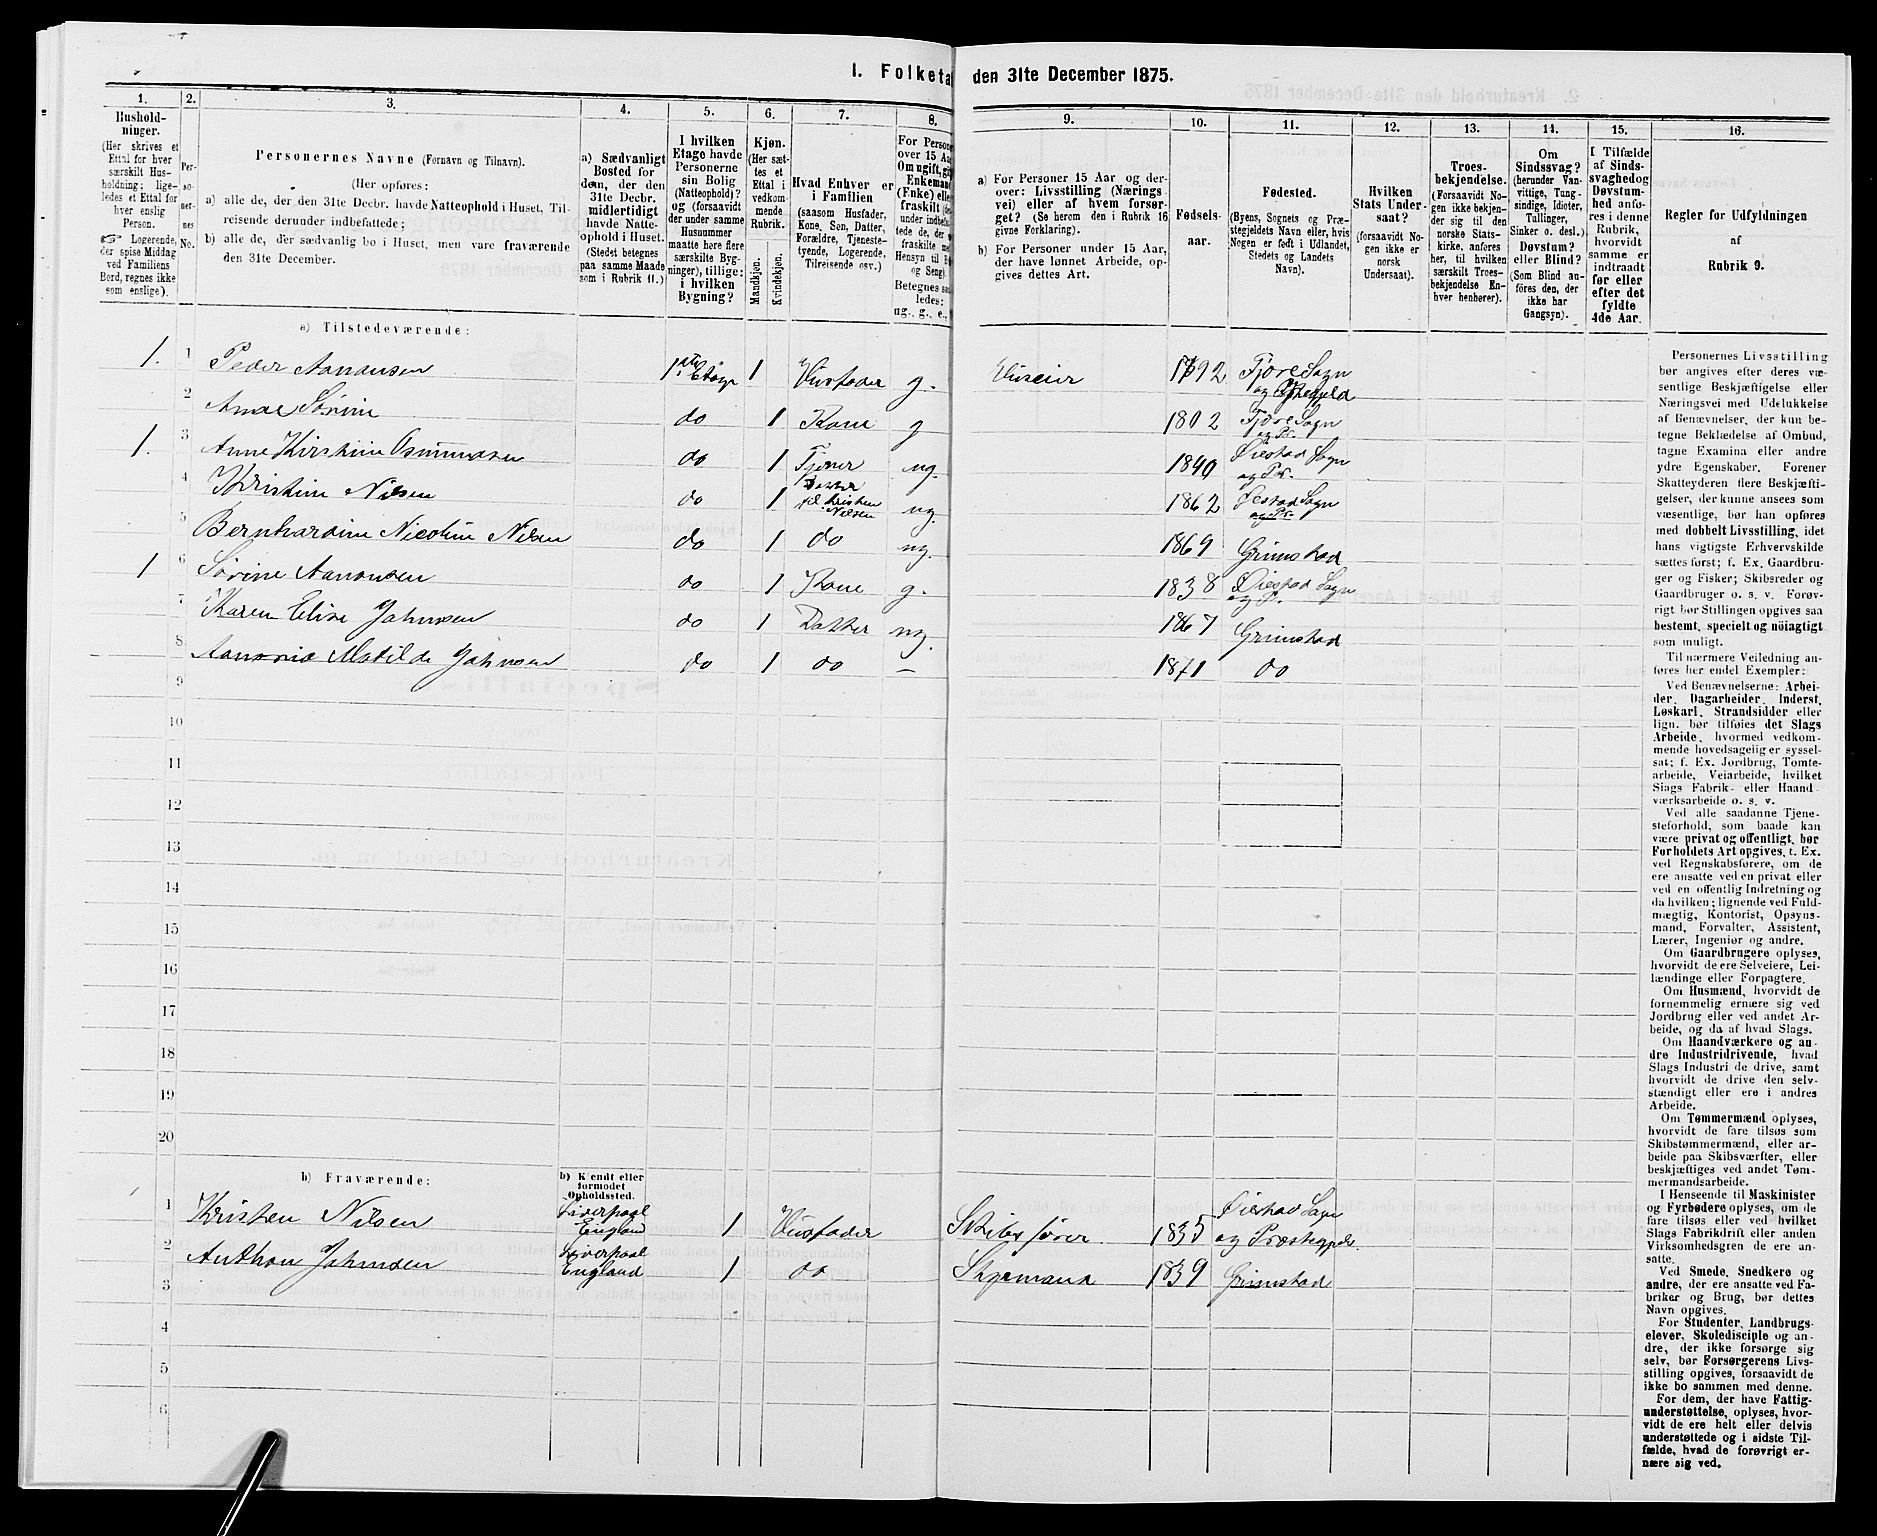 I. Folketa den 31te December 1875.
1. 2. 3. 4. 5. 6. 7. 8. 9. 10. 11. 12. 13. 14. 15. 16.
Hushold-
ninger.
(Her skrives et
Ettal for hver
særskilt Hus-
holdning; lige-
ledes et Ettal for
hver enslig
Person.
☞ Logerende,
der spise Middag
ved Familiens
Bord, regnes ikke
som enslige).
Per-
so-
ner-
nes
No.
Personernes Navne (Fornavn og Tilnavn).
(Her opføres:
a) alle de, der den 31te Decbr. havde Natteophold i Huset, Til-
reisende derunder indbefattede;
b) alle de, der sædvanlig bo i Huset, men vare fraværende
den 31te December.
a) Sædvanligt
Bosted for
dem, der den
31te Decbr.
midlertidigt
havde Natte-
ophold i Huset.
(Stedet betegnes
paa samme Maade
som i Rubrik 11.)
I hvilken
Etage havde
Personerne
sin Bolig
(Natteophold)?
og (forsaavidt
der under samme
Husnummer
maatte høre flere
særskilte Byg-
ninger), tillige:
i hvilken
Bygning?
Kjøn.
(Her sæt-
tes et
Ettal i
vedkom-
mende
Rubrik.
Mandkjøn.
Kvindekjøn.
Hvad Enhver er
i Familien
(saasom Husfader,
Kone, Søn, Datter,
Forældre, Tjeneste-
tyende, Logerende,
Tilreisende osv.)
For Persone
over 15 Aa
Om ugift, gi
Enkeman
(Enke) elle
fraskilt (de
under indbe
tede de, der e
fraskilte me
Hensyn til B
og Seng).
Betegnes saa
ledes:
ug., g., e.,
a) For Personer 15 Aar og der-
over: Livsstilling (Nærings-
vei) eller af hvem forsør-
get? (Se herom den i Rubrik 16
givne Forklaring).
b) For Personer under 15 Aar,
der have lønnet Arbeide, op-
gives dettes Art.
Fødsels-
aar.
Fødested.
(Byens, Sognets og Præ-
stegjeldets Navn eller, hvis
Nogen er født i Udlandet,
Stedets og Landets
Navn).
Hvilken
Stats Under-
saat?
(forsaavidt No-
gen ikke er
norsk
Undersaat).
Troes-
bekjendelse.
(Forsaavidt No-
gen ikke bekjen-
der sig til den
norske Stats-
kirke, anføres
her, til hvilken
særskilt Troes-
bekjendelse En-
hver henhører).
Om
Sindssvag?
(herunder Van-
vittige, Tung-
sindige, Idioter,
Tullinger,
Sinker o. desl.)
Døvstum?
eller Blind?
(Som Blind an-
føres den, der
ikke har
Gangsyn).
I Tilfælde
af Sinds-
svaghedog
Døvstum-
hed anfø-
res i denne
Rubrik,
hvorvidt
samme er
indtraadt
før eller
efter det
fyldte
4de Aar.
Regler for Udfyldningen
af
Rubrik 9.
a) Tilstedeværende:
1. 1 Peder Aanonsen 1ste Etage 1 Husfader g. Huseier 1792 Fjære Sogn
og Pr̈stegjeld
2 Anne Sørine do 1 Kone g 1802 Fjære Sogn
og Pr.
1. 3 Anne Kirstine Osmundsen do 1 Tjener ug. 1840 Øiestad Sogn
og Pr.
4 Kristine Nilsen do 1 Datter
til Kristen
Nilsen ug. 1862 Øiestad Sogn
og Pr.
5 Bernhardine Nicoline Nilsen do 1 do ug. 1869 Grimstad
1 6 Sørine Aanonsen do 1 Kone g. 1838 Øiestad Sogn
og P.
7 Karen Elise Johnsen do 1 Datter ug. 1867 Grimstad
8 Aanonia Matilde Johnsen do 1 do — 1871 do
9
10
11
12
13
14
15
16
17
18
19
20
b) Fraværende:
b) Kjendt eller
formodet
Opholdssted.
1 Kristen Nilsen Liverpool
England 1 Husfader Skibsfører. 1835 Øiestad Sogn
og Præstegjeld.
2 Anthon Johnsen Liverpool
England 1 do Styrmand 1839 Grimstad
3
4
5
6
Personernes Livsstilling
bør angives efter deres væ-
sentlige Beskjæftigelse eller
Næringsvei med Udelukkelse
af Benævnelser, der kun be-
tegne Beklædelse af Ombud,
tagne Examina eller andre
ydre Egenskaber. Forener
Skatteyderen flere Beskjæfti-
gelser, der kunne ansees som
væsentlige, bør han opføres
med dobbelt Livsstilling, idet
hans vigtigste Erhvervskilde
sættes først; f. Ex. Gaardbru-
ger og Fisker; Skibsreder og
Gaardbruger o. s. v. Forøv-
rigt bør Stillingen opgives saa
bestemt, specielt og nöiagtigt
som muligt.
Til nærmere Veiledning an-
føres her endel Exempler:
Ved Benævnelserne: Arbei-
der, Dagarbeider, Inderst,
Løskarl, Strandsidder eller
lign. bør tilføies det Slags
Arbeide, hvormed vedkom-
mende hovedsagelig er syssel-
sat; f. Ex. Jordbrug, Tomte-
arbeide, Veiarbeide, hvilket
Slags Fabrik- eller Haand-
værksarbeide o. s. v.
Ved alle saadanne Tjene-
steforhold, som baade kan
være privat og offentligt, bør
Forholdets Art opgives, t. Ex.
ved Regnskabsførere, om de
ere ansatte ved en privat eller
ved en offentlig Indretning og
da hvilken; lignende ved Fuld-
mægtig, Kontorist, Opsyns-
mand, Forvalter, Assistent,
Lærer, Ingeniør og andre.
Om Gaardbrugere oplyses,
hvorvidt de ere Selveiere, Lei-
lændinge eller Forpagtere.
Om Husmænd, hvorvidt de
fornemmelig ernære sig ved
Jordbrug eller ved andet Ar-
beide, og da af hvad Slags.
Om Haandværkere og an-
dre Industridrivende, hvad
Slags Industri de drive, samt
hvorvidt de drive den selv-
stændigt eller ere i andres
Arbeide.
Om Tømmermænd oplyses,
hvorvidt de fare tilsøs som
Skibstømmermænd, eller ar-
beide paa Skibsværfter, eller
beskjæftiges ved andet Tøm-
mermandsarbeide.
I Henseende til Maskinister
og Fyrbødere oplyses, om de
fare tilsøs eller ved hvilket
Slags Fabrikdrift eller anden
Virksomhedsgren de ere an-
satte.
Ved Smede, Snedkere og
andre, der ere ansatte ved Fa-
briker og Brug, bør dettes
Navn opgives.
For Studenter, Landbrugs-
elever, Skoledisciple og an-
dre, der ikke forsørge sig
selv, bør Forsørgerens Livs-
stilling opgives, forsaavidt de
ikke bo sammen med denne.
For dem, der have Fattig-
understøttelse, oplyses, hvor-
vidt de ere helt eller delvis
understøttede og i sidste Til-
fælde, hvad de forøvrigt er-
nære sig ved.